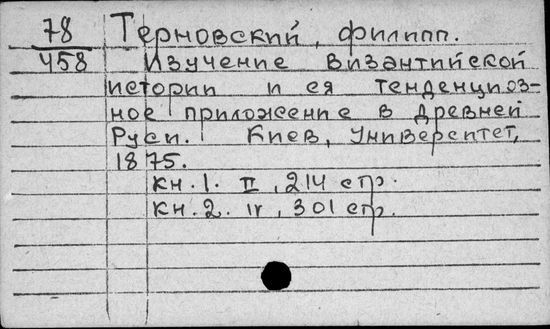 78 Терновский, филипп.
458 Изучение византийской
истории и ея тенденциоз-
ное приложение в древней
Руси. Киев, Университет,
1875.
кн. 1. II, 214 стр.
кн. 2. IV, 301 стр.